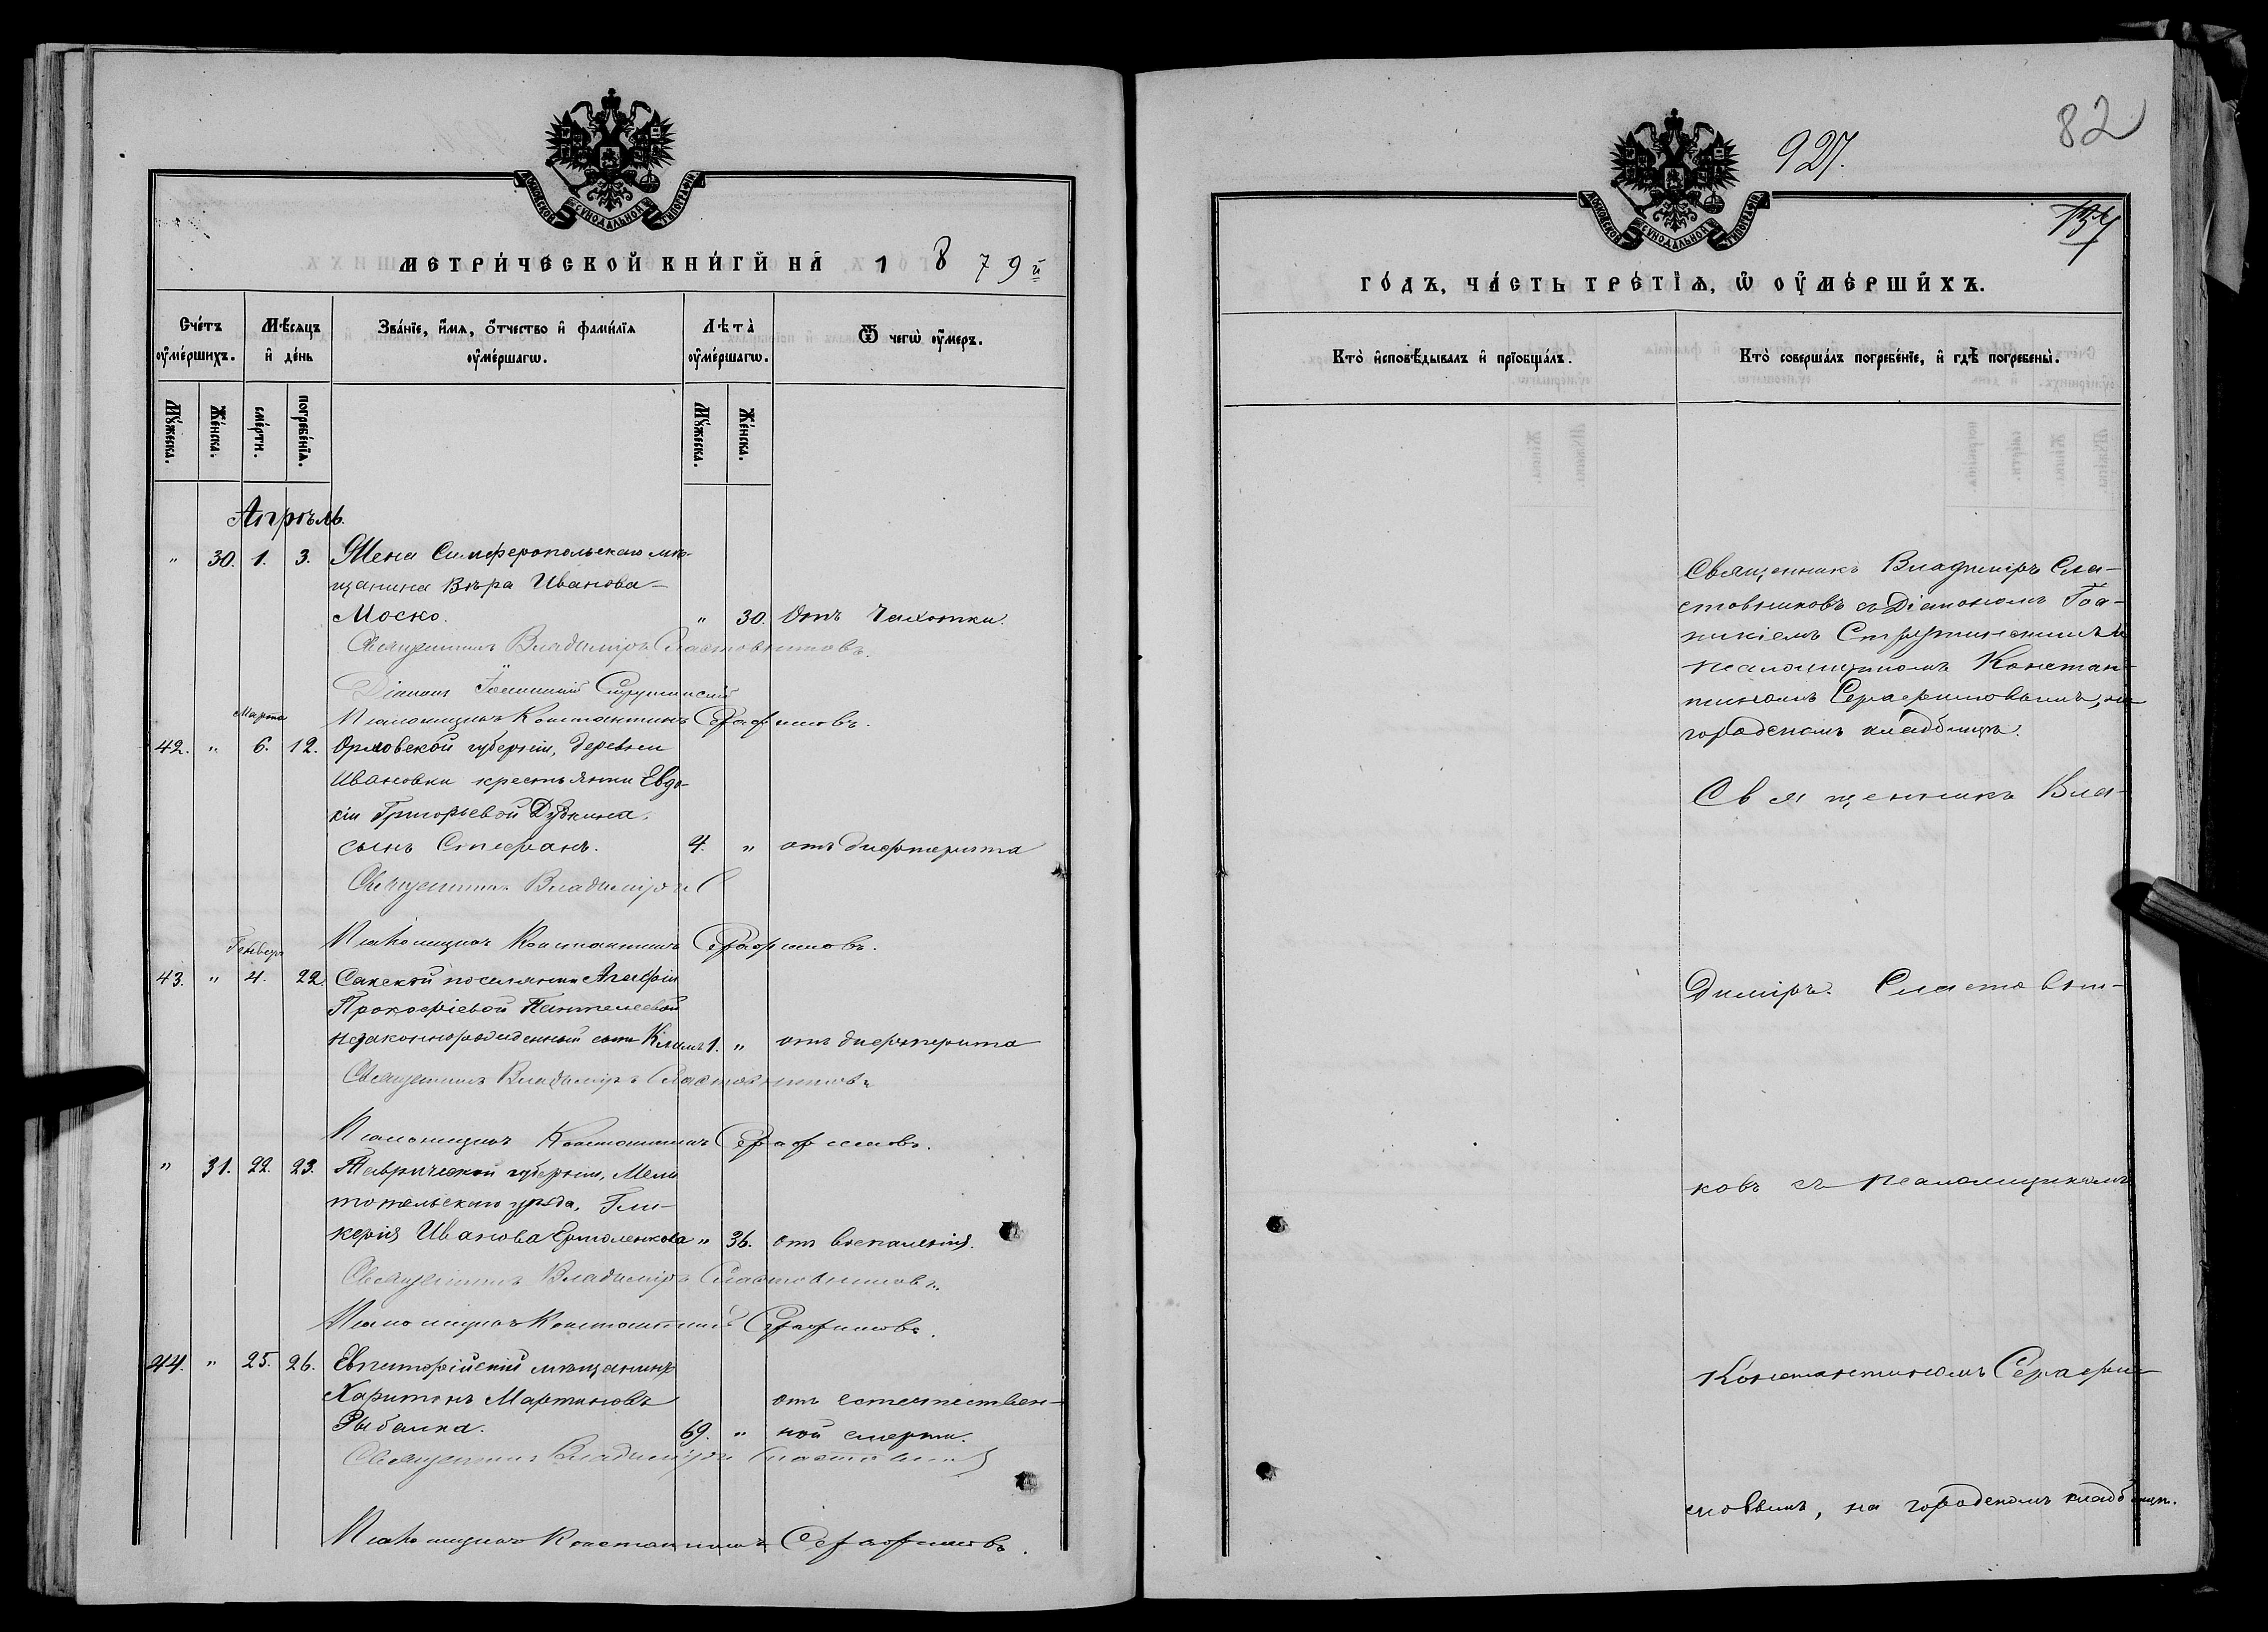 МОСКОВСКОЙ СУНОДАЛЬНОЙ ТИПОГРАФІИ
МЕТРИ́ЧЕСКОЙ КНИ́ГИ НА 1879й
Сче́тъ ᲂу҆ме́ршихъ.
Мѣ́сяцъ и҆ де́нь
Зва́нїе, и҆́мя, ѻ҆́тчество и҆ фами́лїя ᲂу҆ме́ршагѡ.
Лѣ́та ᲂу҆ме́ршагѡ.
Ѿ чегѡ̀ ᲂу҆́меръ.
Мꙋ́жеска.
Же́нска.
сме́рти.
погребе́нїѧ.
Мꙋ́жеска.
Же́нска.
Апрѣль.
" 30. 1. 3. Жена Симферопольскаго мѣ-
щанина Вѣра Иванова
Моско. " 30. Отъ Чахотки.
Священникъ Владиміръ Сластовниковъ.
Діаконъ Іоанникій
Псаломщикъ Константинъ Серафимовъ.
Марта
42. " 6. 12. Орловской губерніи, деревни
Ивановки крестьянки Евдо-
кіи Григорьевой Дудкина,
сынъ Стефанъ. 4. " отъ дифтерита
Священникъ Владиміръ С
Псаломщикъ Константинъ Серафимовъ.
Генваря
43. " 4. 22. Сакской поселянки Агафіи
Прокофіевой Пантелеевой
незаконнорожденный сынъ Климъ 1. " отъ дифтерита
Священникъ Владиміръ Сластовниковъ
Псаломщикъ Константинъ Серафимовъ.
" 31. 22. 23. Таврической губерніи, Мели
топольскаго уѣзда, Гли-
керія Иванова Ермоленкова " 36. отъ воспаленія.
Священникъ Владиміръ Сластовниковъ.
Псаломщикъ Константинъ Серафимовъ.
44. " 25. 26. Евпаторійскій мѣщанинъ
Харитонъ Мартиновъ отъ естествен-
Рыбалка. 69. " ной смерти.
Священникъ Владиміръ
Псаломщикъ Константинъ Серафимовъ.
82
927.
МОСКОВСКОЙ СУНОДАЛЬНОЙ ТИПОГРАФІИ
ГО́ДЪ, ЧА́СТЬ ТРЕ́ТЇѦ, Ѡ҆ ОУ҆МЕ́РШИХЪ.
Кто̀ и҆сповѣ́дывалъ и҆ прїѡбща́лъ.
Кто̀ соверша́лъ погребе́нїе, и҆ гдѣ̀ погребены̀.
Священникъ Владиміръ Сла-
стовниковъ съ Діакономъ Іоа-
никіемъ и
псаломщикомъ Констан-
тиномъ Серафимовымъ, на
городскомъ кладбищѣ.
Священникъ Вла-
диміръ Сластовни-
ковъ съ псаломщикомъ
Константиномъ Серафи-
мовымъ, на городскомъ кладбищѣ.